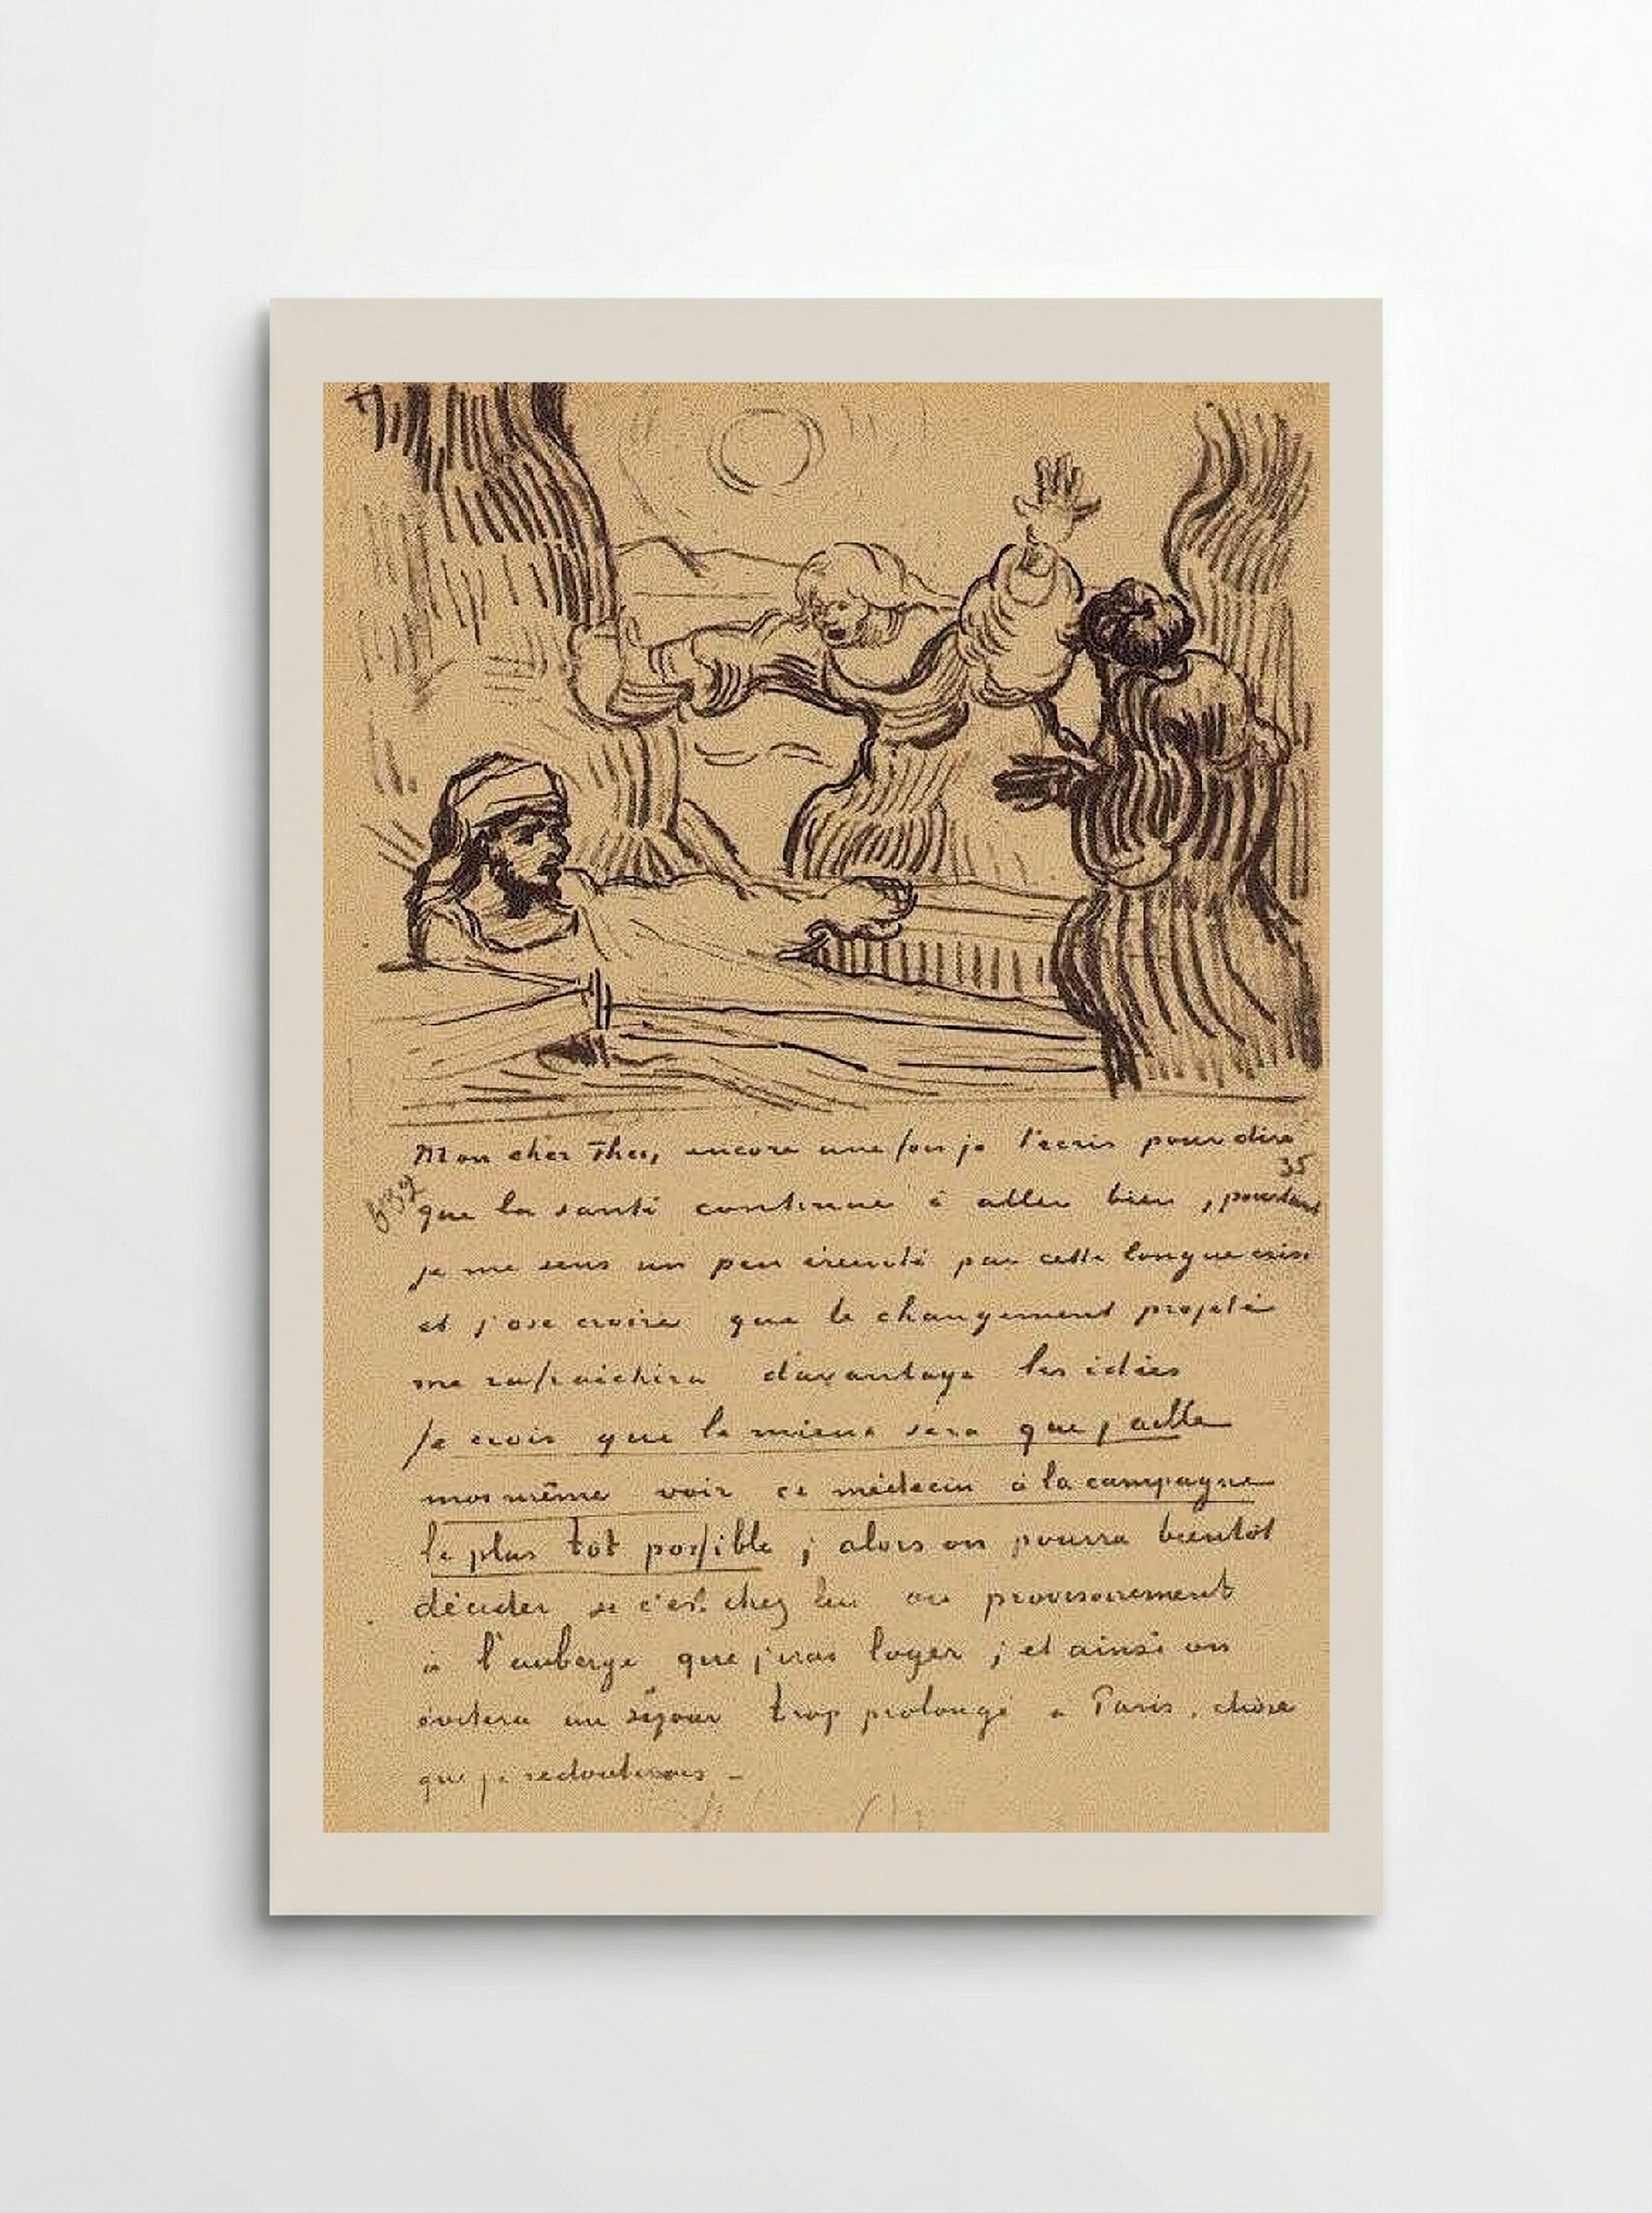 Mon cher Theo, encore une fois je t'écris pour dire
35
b 32
que la santé continue à aller bien, pourtant
je me sens un peu éreinté par cette longue crise
et j'ose croire que le changement projeté
me rafraichira davantage les idées
Je crois que le mieux sera que j'aille
moi même voir ce médecin à la campagne
le plus tôt possible; alors on pourra bientôt
décider si c'est chez lui ou provisoirement
à l'auberge que j'irai loger; et ainsi on
évitera un séjour trop prolongé à Paris, chose
que je redouterais –